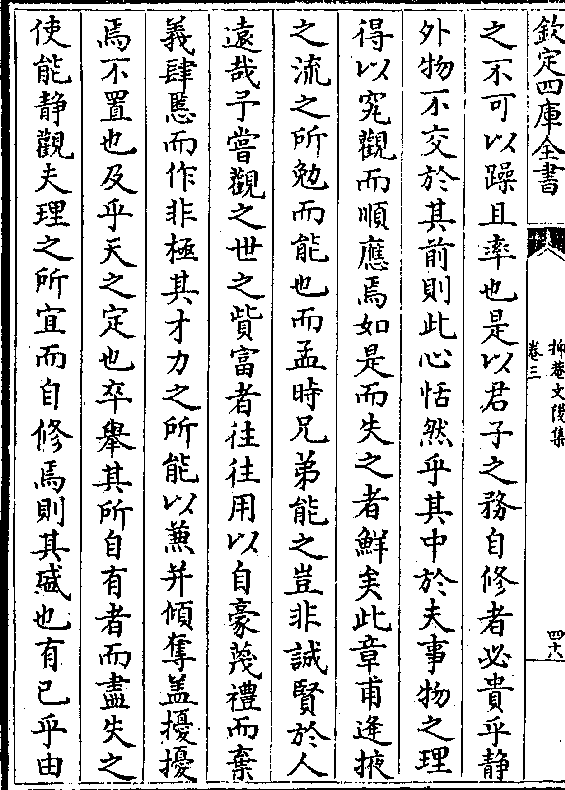 欽定四庫全書
抑菴文後集
卷三
四十八
之不可以躁且率也是以君子之務自修者必貴乎静
外物不交於其前則此心恬然乎其中於夫事物之理
得以究觀而順應焉如是而失之者鮮矣此章甫逢掖
之流之所勉而能也而孟時兄弟能之豈非誠賢於人
遠哉予嘗觀之世之貲富者往往用以自豪蔑禮而棄
義肆慝而作非極其才力之所能以蕪并傾奪盖擾擾
焉不置也及乎天之定也卒舉其所自有者而盡失之
使能静觀夫理之所宜而自修焉則其盛也有已乎由